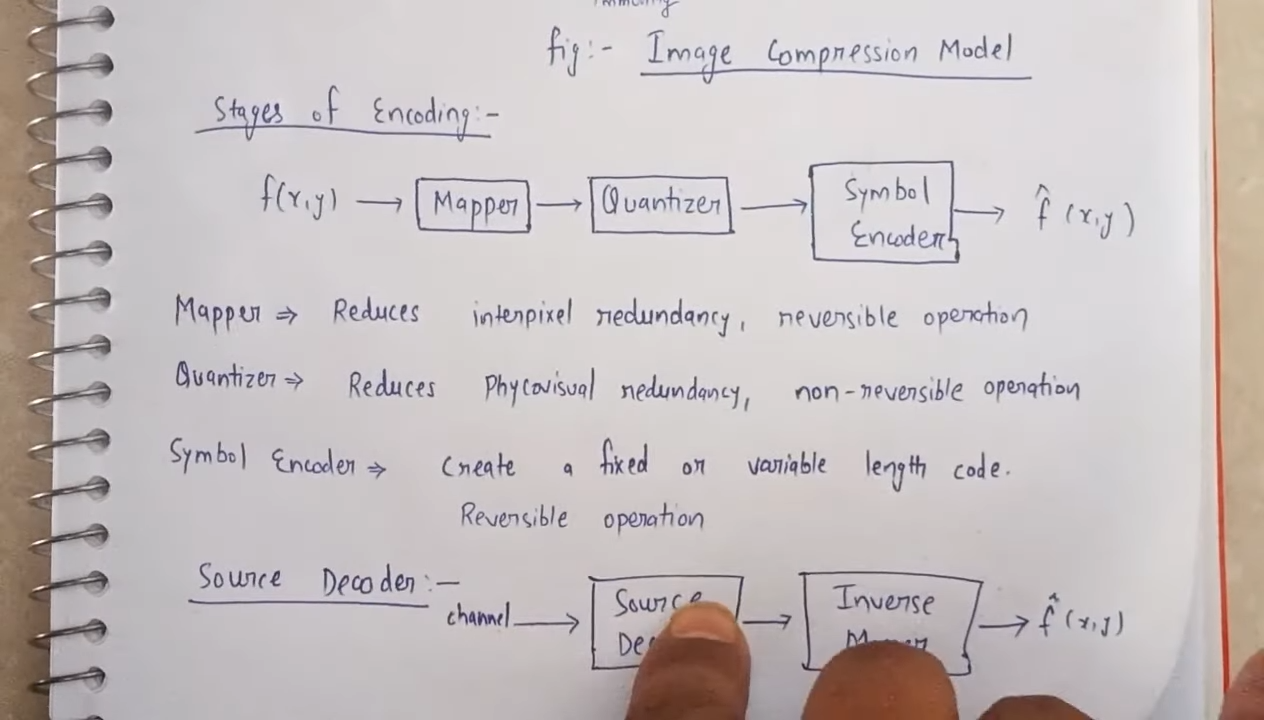 fig:- Image Compression Model
Stages of Encoding:-
f(x,y) → Mapper → Quantizer → Symbol Encoder → f̂ (x,y)
Mapper ⇒ Reduces interpixel redundancy, reversible operation
Quantizer ⇒ Reduces Phycovisual redundancy, non-reversible operation
Symbol Encoder ⇒ Create a fixed or variable length code.
Reversible operation
Source Decoder:-
channel → Source → Inverse → f̂ (x,y)